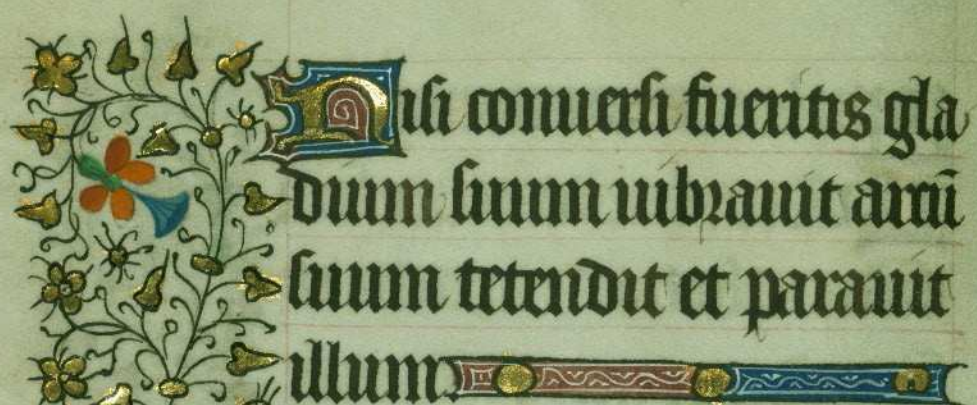 Nisi conuersi fueritis gla
dium suum uibrauit arcū
suum tetendit et parauit
illum.